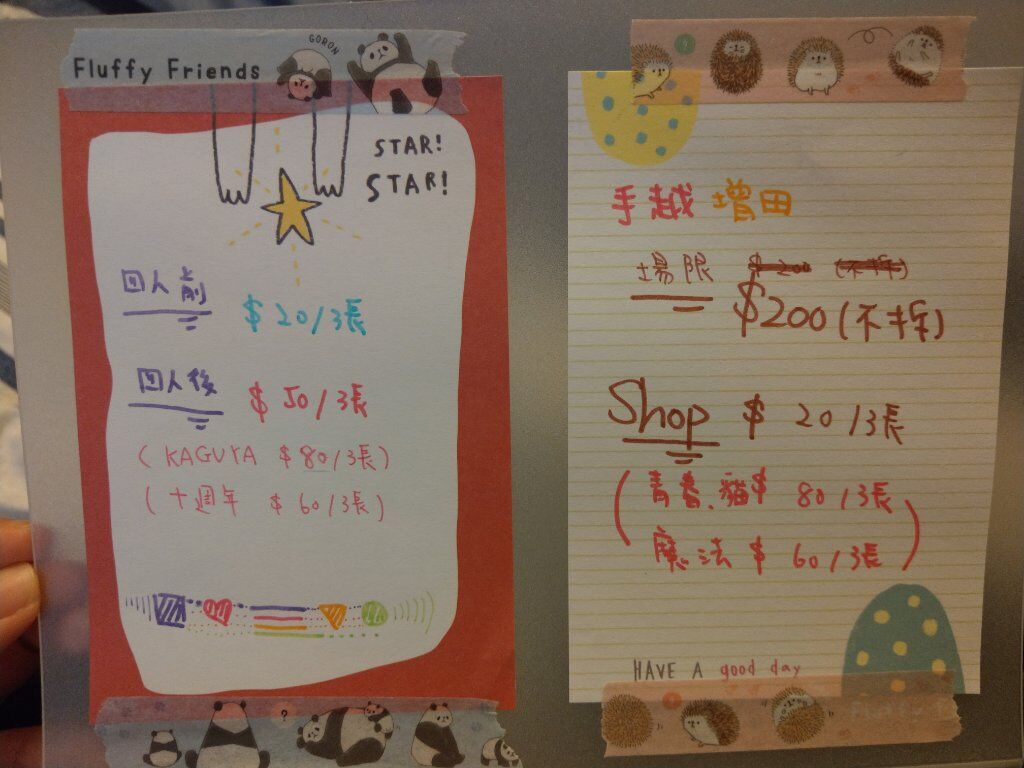 Fluffy Friends
GORON
STAR!
STAR!
四人前
$20/3張
四人後
$50/3張
(KAGUYA $80/3張)
(十週年 $60/3張)
?
?
手越 增田
場限 $200 (不拆)
$200(不拆)
Shop $20/3張
(青春、貓$ 80/3張
魔法$ 60/3張)
HAVE A good day
Fluffy